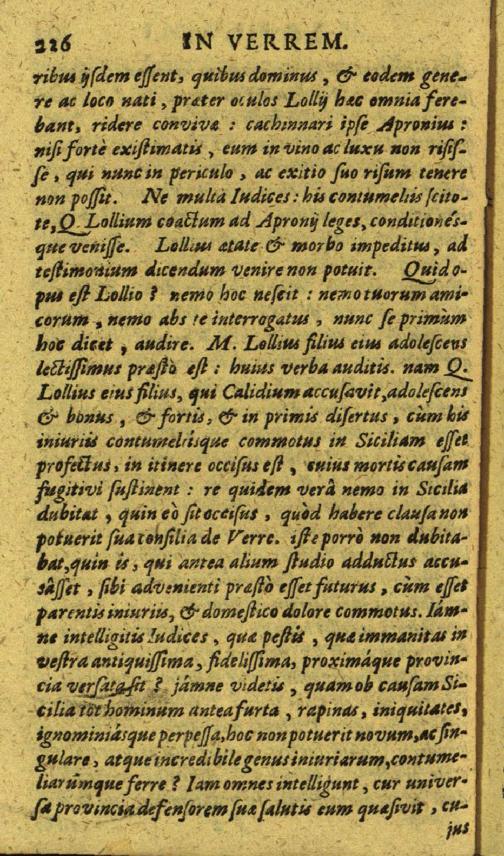 226 IN VERREM.
ribus ijsdem essent, quibus dominus, & eodem gene-
re ac loco nati, præter oculos Lollij hæc omnia fere-
bant, ridere convivæ : cachinnari ipse Apronius :
nisi fortè existimatis, eum in vino ac luxu non risis-
se, qui nunc in periculo, ac exitio suo risum tenere
non possit. Ne multa Iudices : his contumeliis scito-
te, Q. Lollium coactum ad Apronij leges, conditionés-
que venisse. Lollius ætate & morbo impeditus, ad
testimonium dicendum venire non potuit. Quid o-
pus est Lollio ? nemo hoc nescit : nemo tuorum ami-
corum, nemo abs te interrogatus, nunc se primùm
hoc dicet, audire. M. Lollius filius eius adolescens
lectissimus præstò est : huius verba auditis. nam Q.
Lollius eius filius, qui Calidium accusavit, adolescens
& bonus, & fortis, & in primis disertus, cùm his
iniuriis contumeliisque commotus in Siciliam esset
profectus, in itinere occisus est, cuius mortis causam
fugitivi sustinent : re quidem verâ nemo in Sicilia
dubitat, quin eò sit occisus, quòd habere clausa non
potuerit sua consilia de Verre. iste porrò non dubita-
bat, quin is, qui antea alium studio adductus accu-
sâsset, sibi advenienti præstò esset futurus, cùm esset
parentis iniuriis, & domestico dolore commotus. Iám-
ne intelligitis Iudices, quæ pestis, quæ immanitas in
vestra antiquissima, fidelissima, proximáque provin-
cia versata sit ? jámne videtis, quam ob causam Si-
cilia tot hominum antea furta, rapinas, iniquitates,
ignominiásque perpessa, hoc non potuerit novum, ac sin-
gulare, atque incredibile genus iniuriarum, contume-
liarúmque ferre ? Iam omnes intelligunt, cur univer-
sa provincia defensorem suæ salutis eum quæsivit, cu-
jus